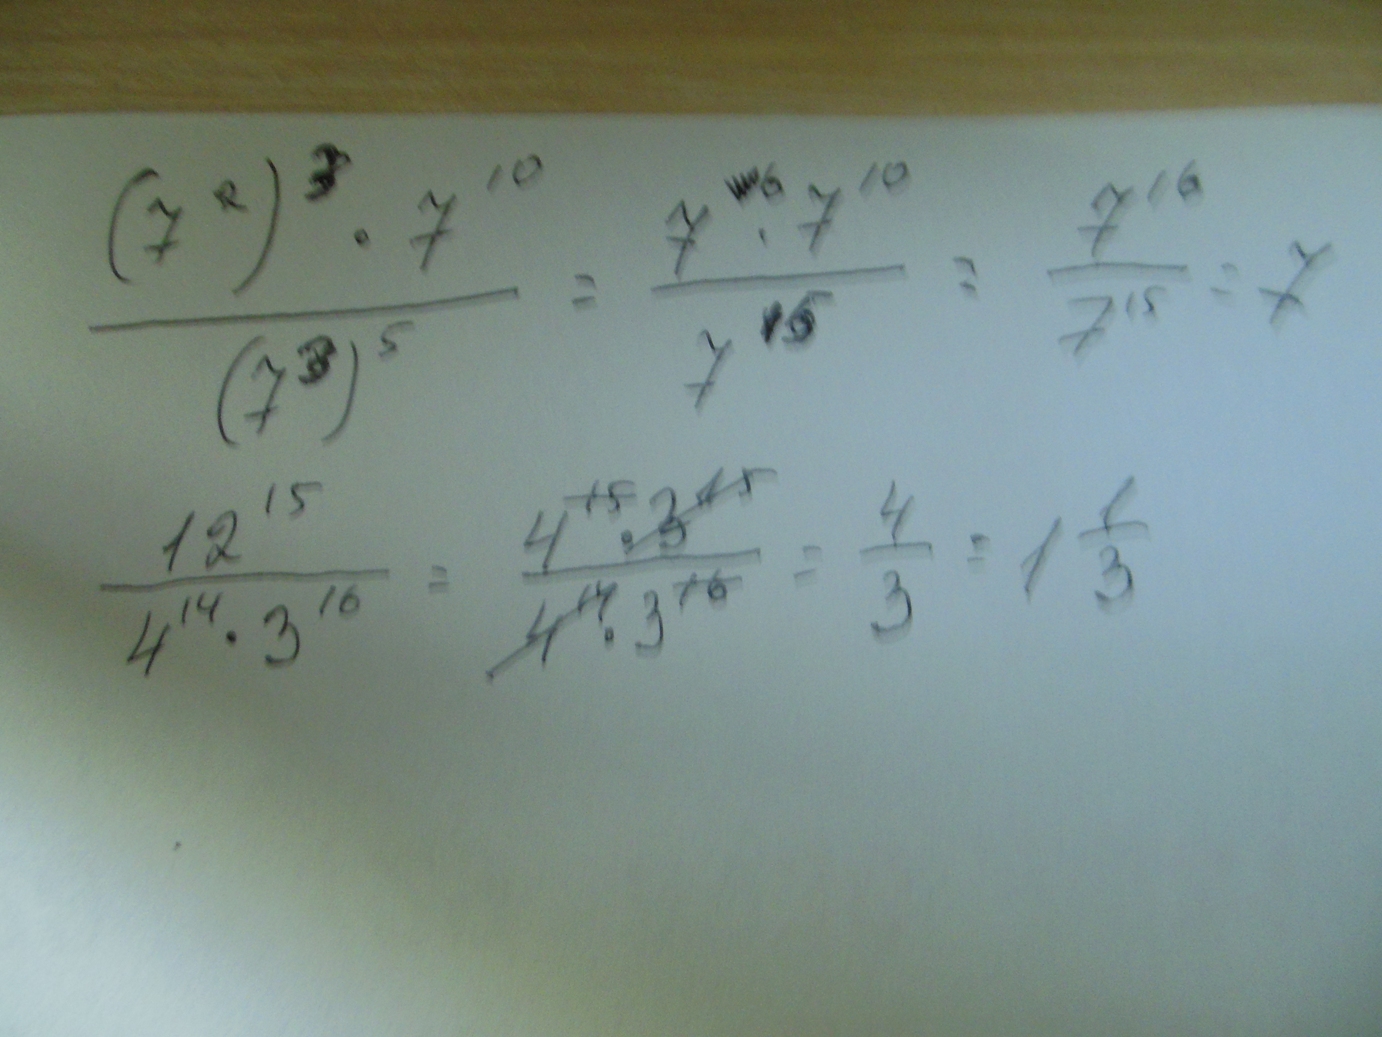 (7²)³ · 7¹⁰ / (7³)⁵ = 7⁶ · 7¹⁰ / 7¹⁵ = 7¹⁶ / 7¹⁵ = 7
12¹⁵ / 4¹⁴ · 3¹⁶ = 4¹⁵ · 3¹⁵ / 4¹⁴ · 3¹⁶ = 4/3 = 1 1/3